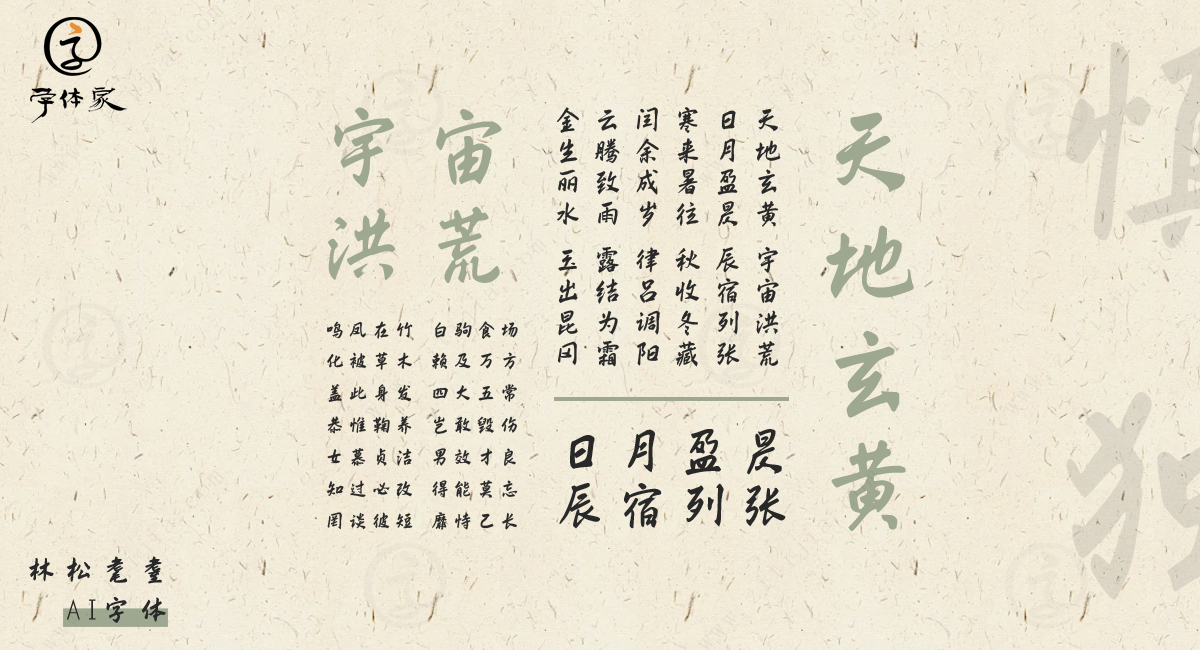 字体家
天地玄黄
天地玄黄 宇宙洪荒
日月盈昃 辰宿列张
寒来暑往 秋收冬藏
闰余成岁 律吕调阳
云腾致雨 露结为霜
金生丽水 玉出昆冈
日月盈昃
辰宿列张
宇宙
洪荒
鸣凤在竹 白驹食场
化被草木 赖及万方
盖此身发 四大五常
恭惟鞠养 岂敢毁伤
女慕贞洁 男效才良
知过必改 得能莫忘
罔谈彼短 靡恃己长
林松耄耋
AI字体